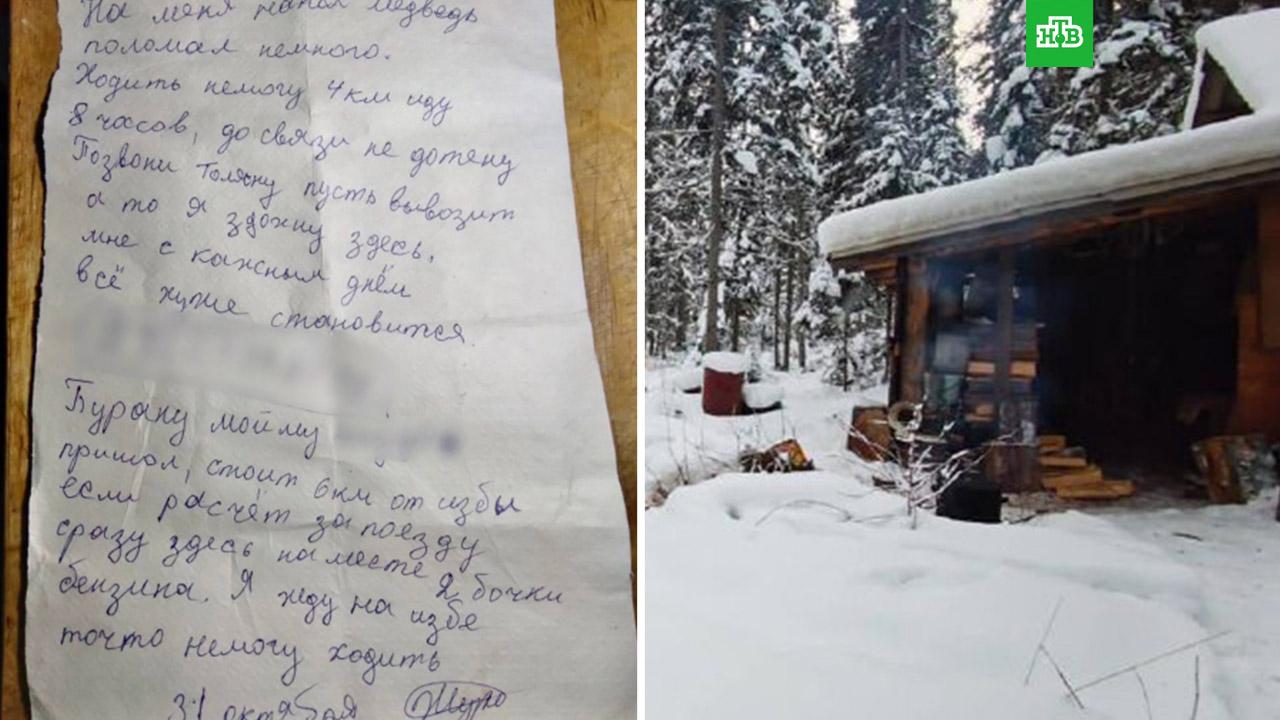 На меня напал медведь
поломал немного.
Ходить немогу 4 км иду
8 часов, до связи не дотяну
Позвони Толяну пусть вывозит
а то я здохну здесь,
мне с кажным днём
всё хуже становится.
Бурану мойму
пришол, стоит 6 км от избы
если расчёт за поезду
сразу здесь на месте 2 бочки
бензина. Я жду на избе
точто немогу ходить
31 октября
НТВ